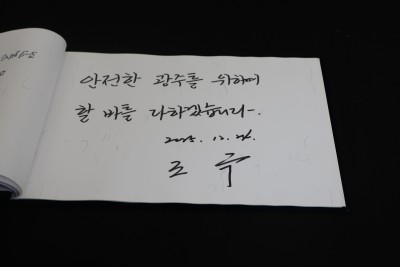 안전한 광주를 위하여
할 바를 다하겠습니다.
2025. 12. 26.
조 국